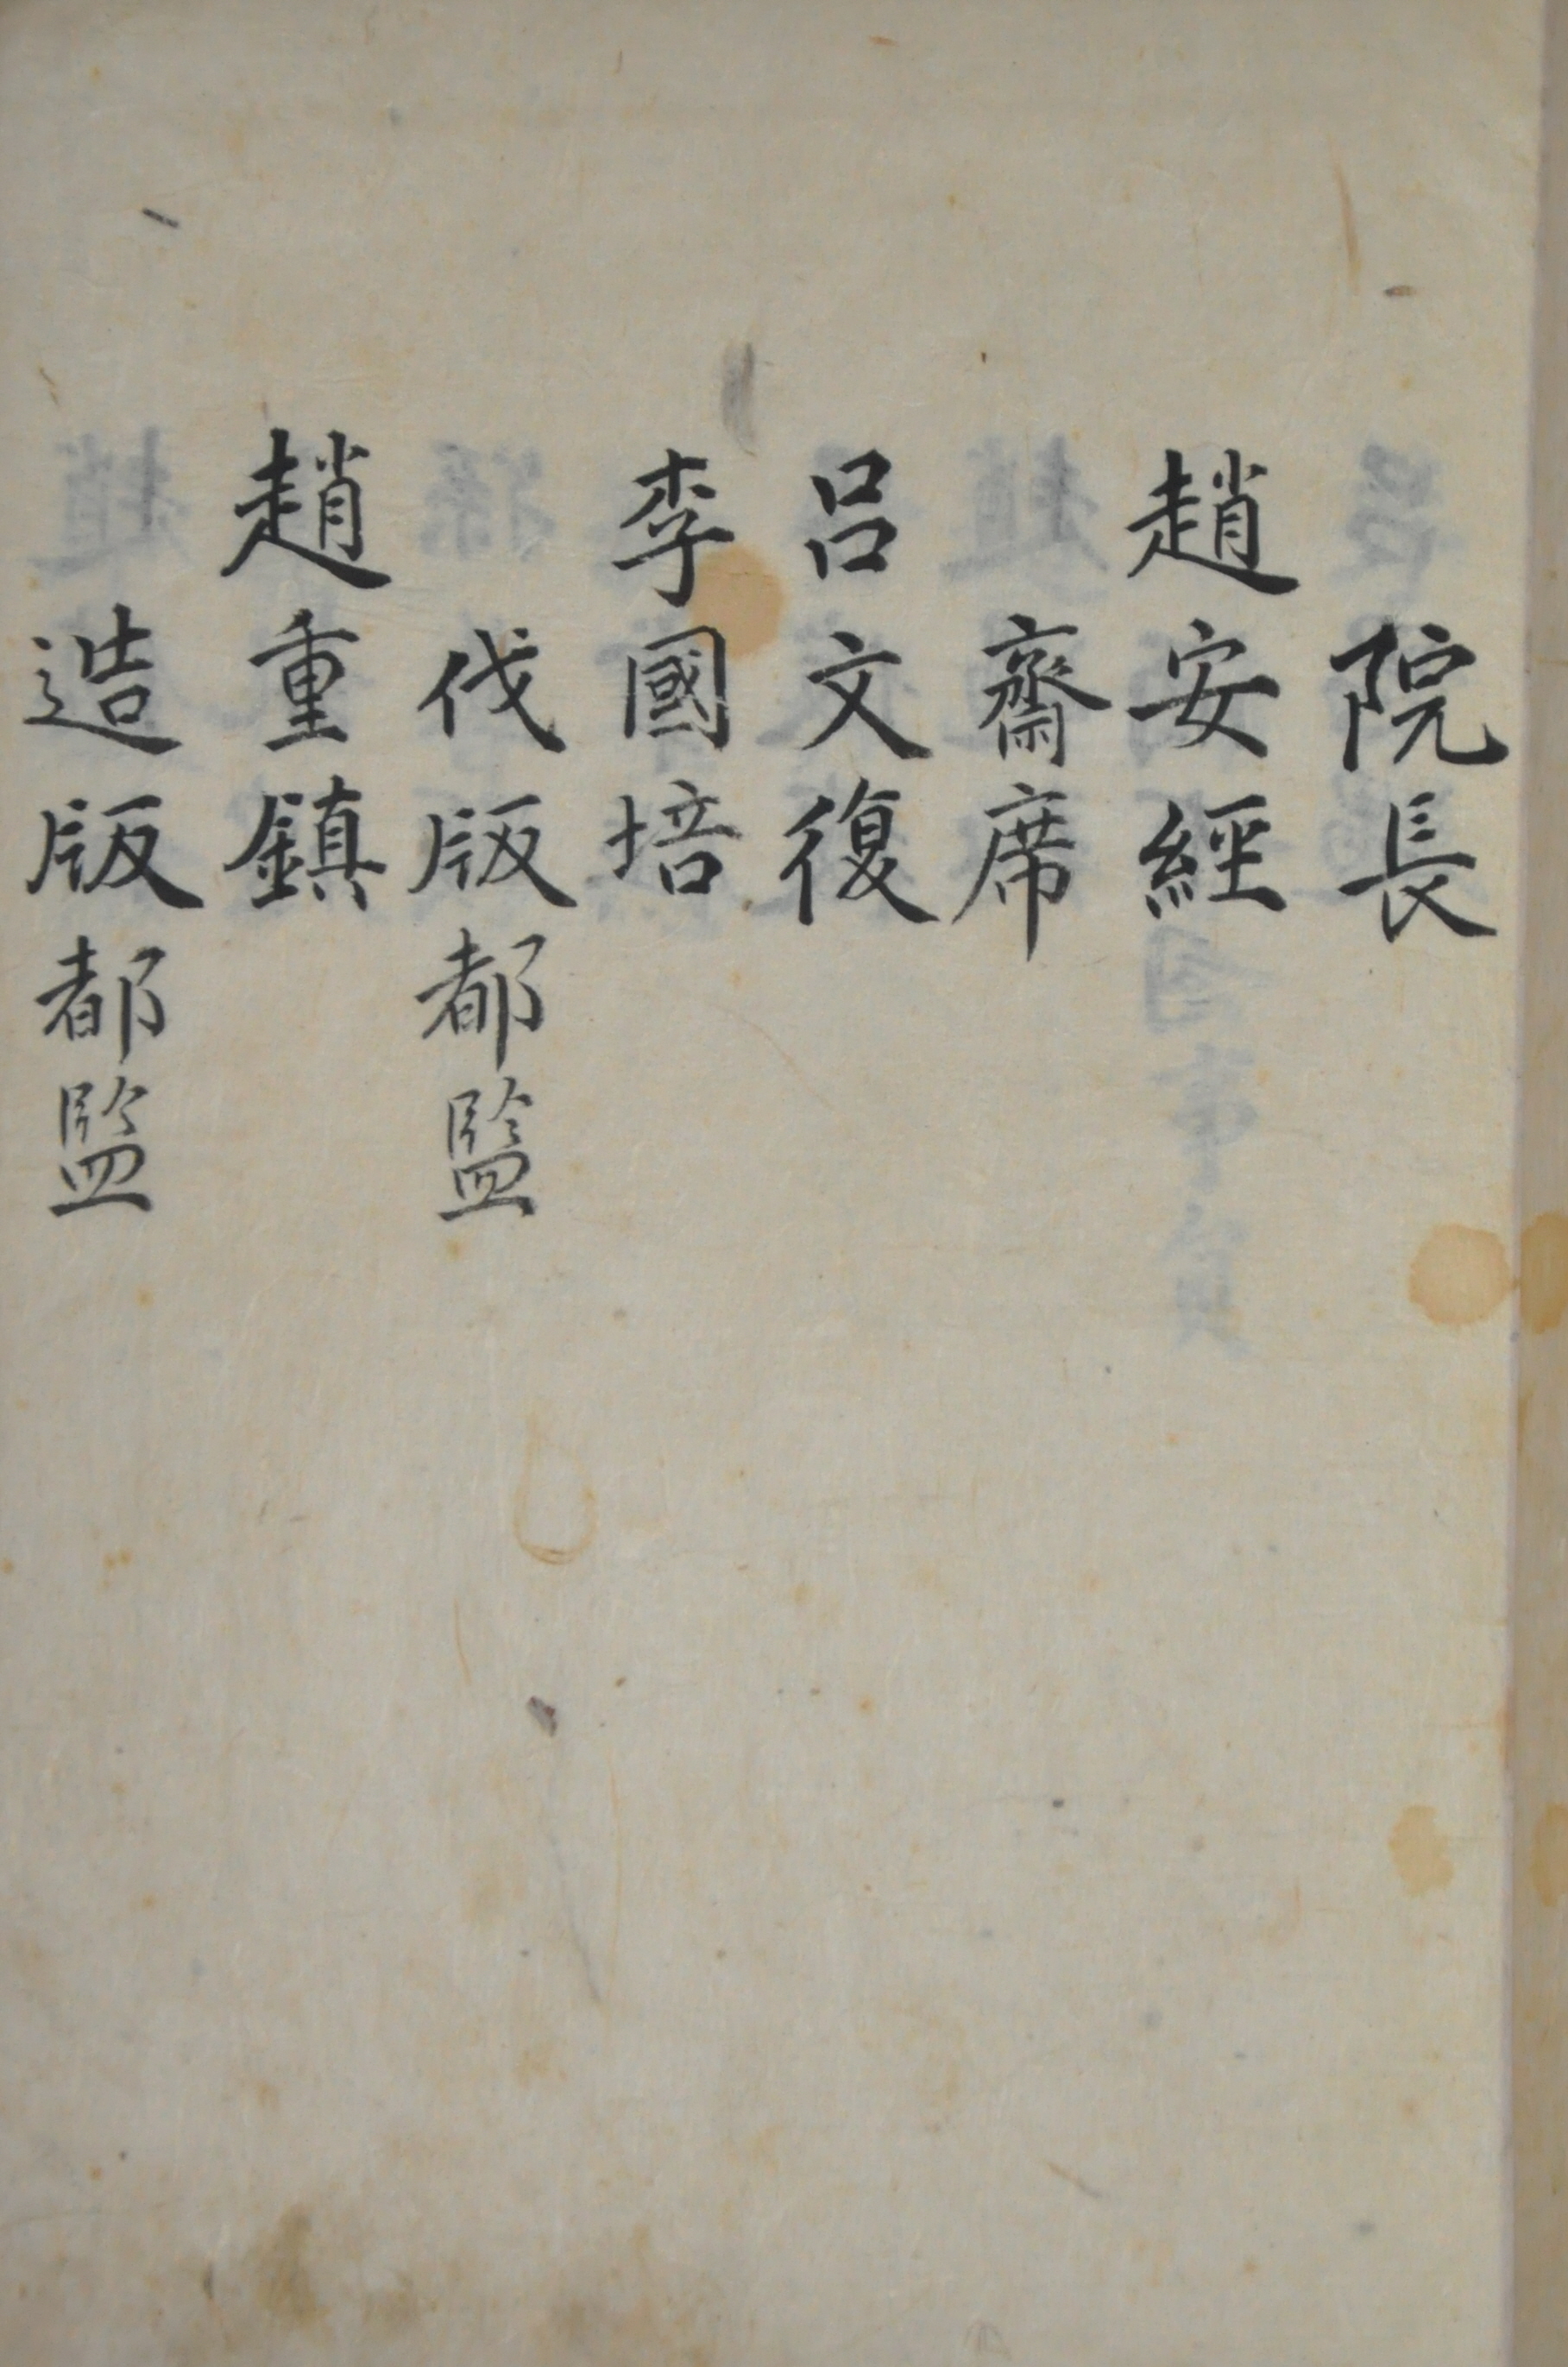 院長
趙安經
齋席
呂文復
李國培
伐版都監
趙重鎮
造版都監